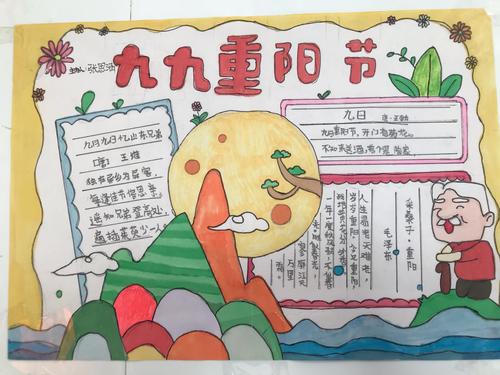 九九重阳节
九月九日忆山东兄弟
[唐] 王维
独在异乡为异客,
每逢佳节倍思亲,
遥知兄弟登高处,
遍插茱萸少一人
九日
唐·王勃
九日重阳节,开门有菊花。
不知来送酒,若个是陶家
采桑子·重阳
毛泽东
人生易老天难老,
岁岁重阳,今又重阳
战地黄花分外香
一年一度秋风劲,不似春
光,胜似春光,
寥廓江天
万里
霜。